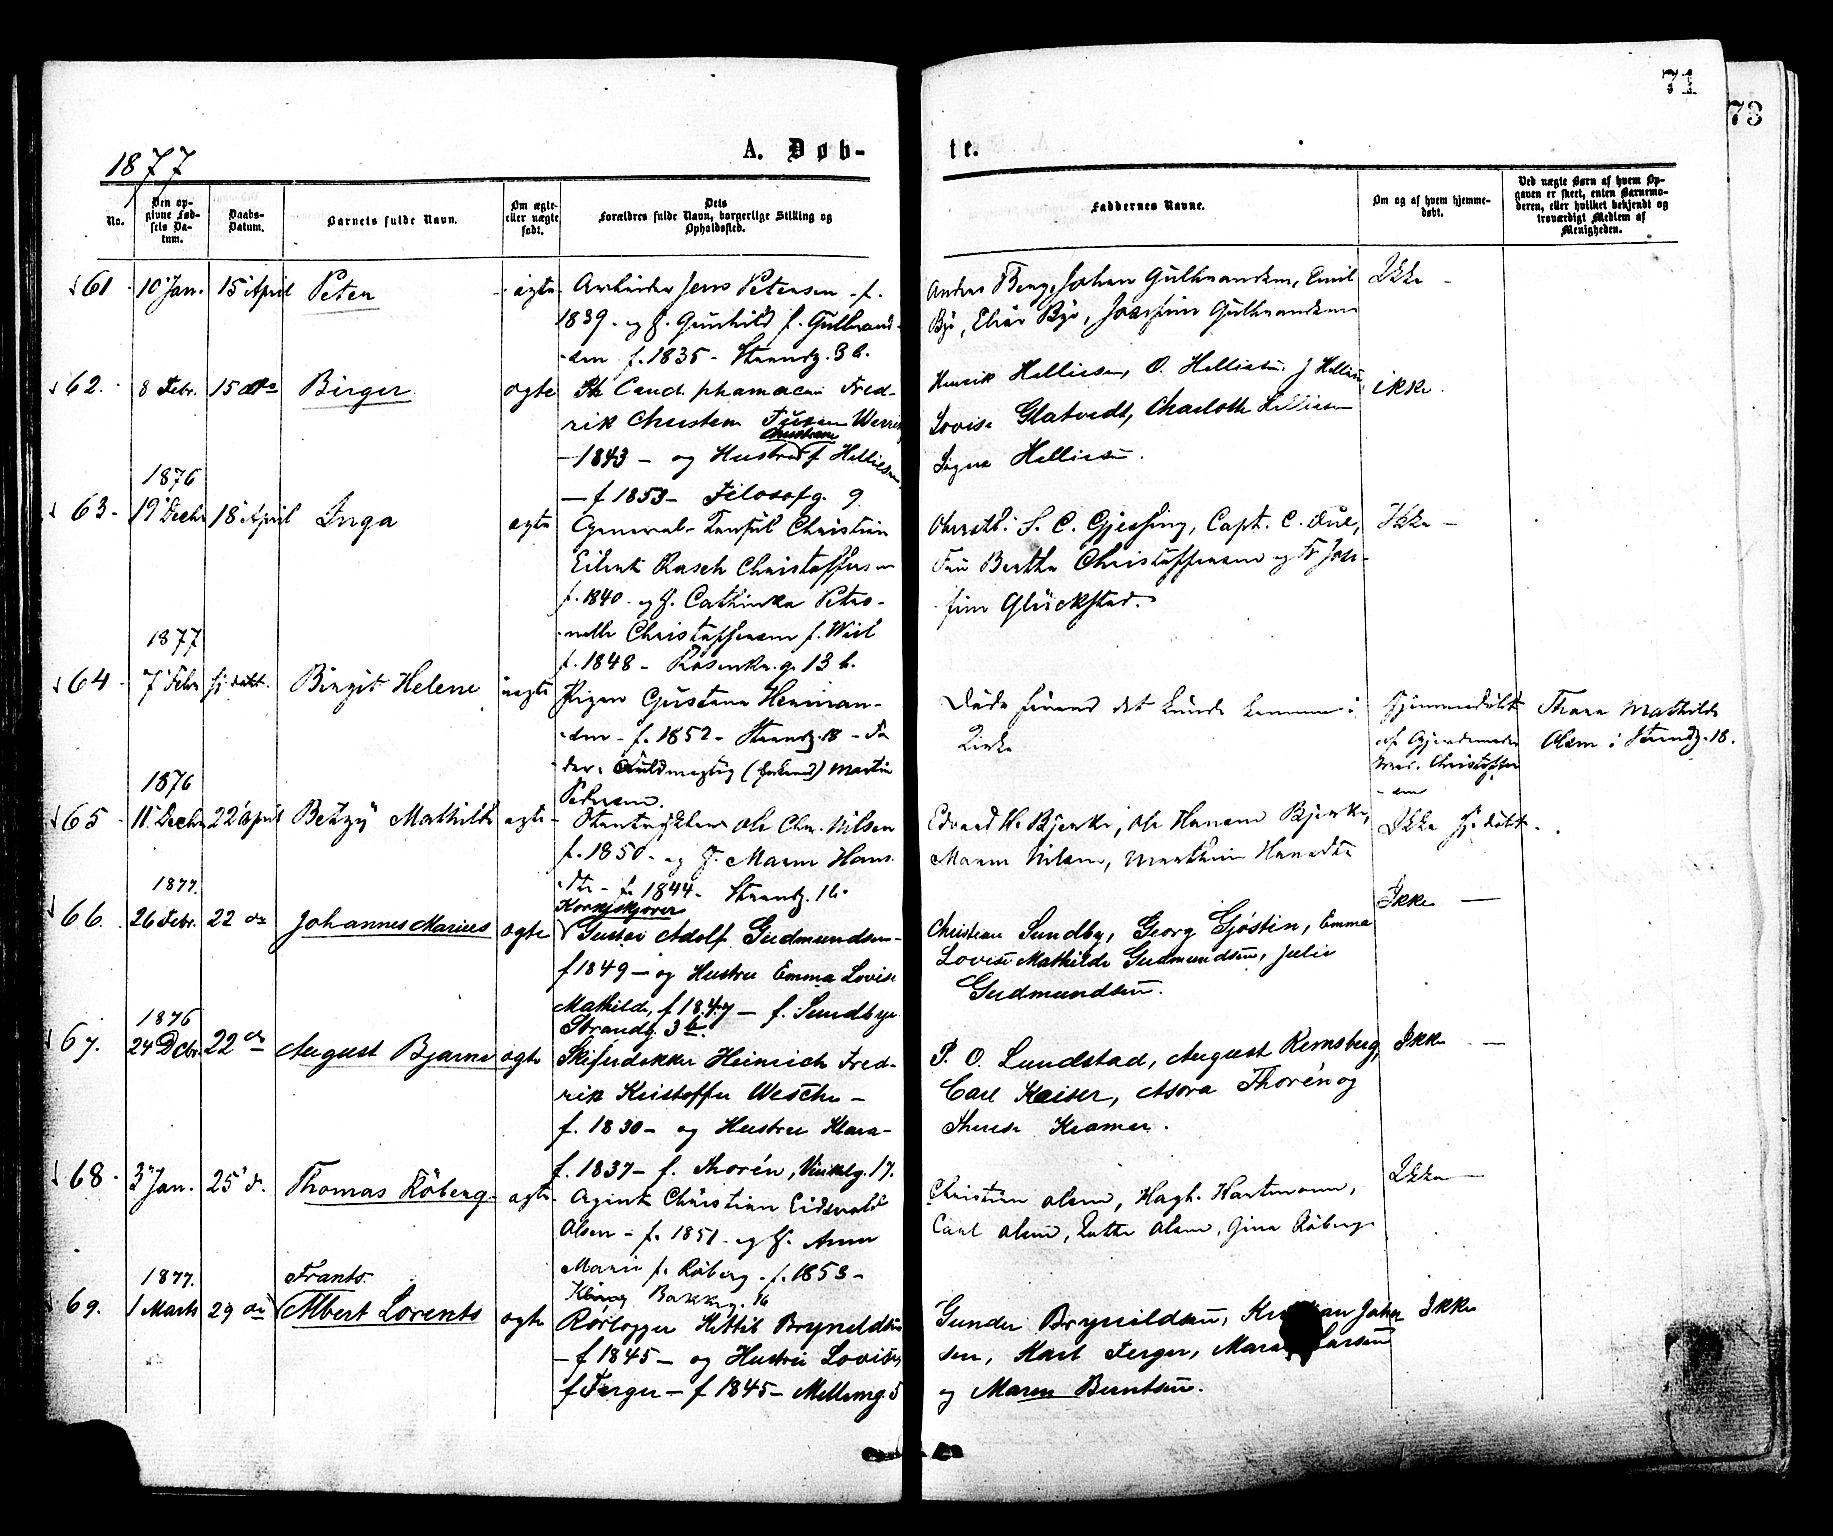 71
73
1877
A. Døb-
te.
No.
Den op-
givne Fød-
sels Da-
tum.
Daabs-
Datum.
Barnets fulde Navn.
Om ægte
eller uægte
født.
Dets
Forældres fulde Navn, borgerlige Stilling og
Opholdssted.
Faddernes Navne.
Om og af hvem hjemme-
døbt.
Ved uægte Børn af hvem Op-
gaven er skeet, enten Barnemo-
deren, eller hvilket bekjendt og
troværdigt Medlem af
Menigheden.
61 10 Jan. 15 April Peter ægte Arbeider Jens Petersen - f.
1839 - og H. Gunhild f. Gulbrand-
sen f. 1835 - Strandg. 3 b.
Andreas Berg, Johan Gulbrandsen, Emil
Bye, Elise Bye, Josefine Gulbrandsen
Ikke -
62. 8 Febr. 15 do Birger ægte Cand. phamacia Fred-
rik Christern Juern
Christiane
- 1843 - og Hustru f Helliesen
- f 1853 - Filosofg. 9
Henrik Helliesen, O. Helliesen, J Helliesen
Lovise Glatvedt, Charlotte Helliesen
Signe Helliesen.
ikke.
1876
63 - 19 Decbr 18 April Inga ægte General-Konsul Christian
Eilert Rasch Christophersen
f. 1840 - og H. Cathinka Petro-
nelle Christophersen f.
f. 1848 - Rosenkr. g. 13 b.
S. C. Gjessing, Capt. C. Due,
Fru Berthe Christophersen og Fr Jose-
fine Glückstad.
Ikke -
1877
64 7 Febr hj. døbt. Birgit Helene uægte Pigen Gustava Herman-
sen - f. 1852 - Strandg. 18 - Fa
der: Fuldmægtig Martin
Petersen.
Døde førend det kunde komme i
Kirke
Hjemmedøbt
af Gjordemoder
Christoffer
- sen
Thora Mathilde
Olsen i Strandg. 18.
1876
65 11 Decbr 22 April Betzy Mathilde ægte - Ole Chr. Nilsen
f. 1850 - og H. Maren Hans-
dtr - f. 1844 - Strandg. 16.
Edvard H. Bjerke, Ole Hansen Bjerke,
Maren Nilsen, Marthine Hansdtr
Ikke hj. døbt.
1877.
66. 26 Febr. 22 do Johannes Marius ægte Korkskjærer
Gustav Adolf Gudmundsen -
f 1849 - og Hustru Emma Lovise
Mathilde, f 1847 - f. Sundbye
Strandg. 3 b.
Christian Sundby, Georg Sjøstin, Emma
Lovise Mathilde Gudmundsen, Julie
Gudmundsen.
Ikke -
1876
67. 24 Dcbr. 22 do August Bjarne ægte Skiferdekker Heinrich Fred-
rik Kristoffer Wesche -
f. 1830 - og Hustru Klara -
f. 1837 - f. Thorén, Vinkelg. 17.
P. O. Lundstad, August Remsberg,
Carl Kaiser, Asora Thorén og
Therese Kramer.
Ikke -
68. 3 Jan. 25 d. Thomas Röberg ægte Agent Christian Eidsvold
Olsen - f. 1851 - og H. Anna
Marie f. Röberg - f. 1853 -
Bakkeg. 16
Christian Olsen, Hagb. Hartmann,
Carl Olsen, Lotte Olsen, Gina Röberg
Ikke -
1877.
69. 1 Marts 29 do Frants
Albert Lorents ægte Rørlægger Kittil Bryneldsen
- f 1845 - og Hustru Lovise,
f Ferger - f 1845 - Mellemg. 5
Gunder Bryneldsen, Johan
sen, Karl Ferger, Larsen
og Maren Berntsen.
Ikke